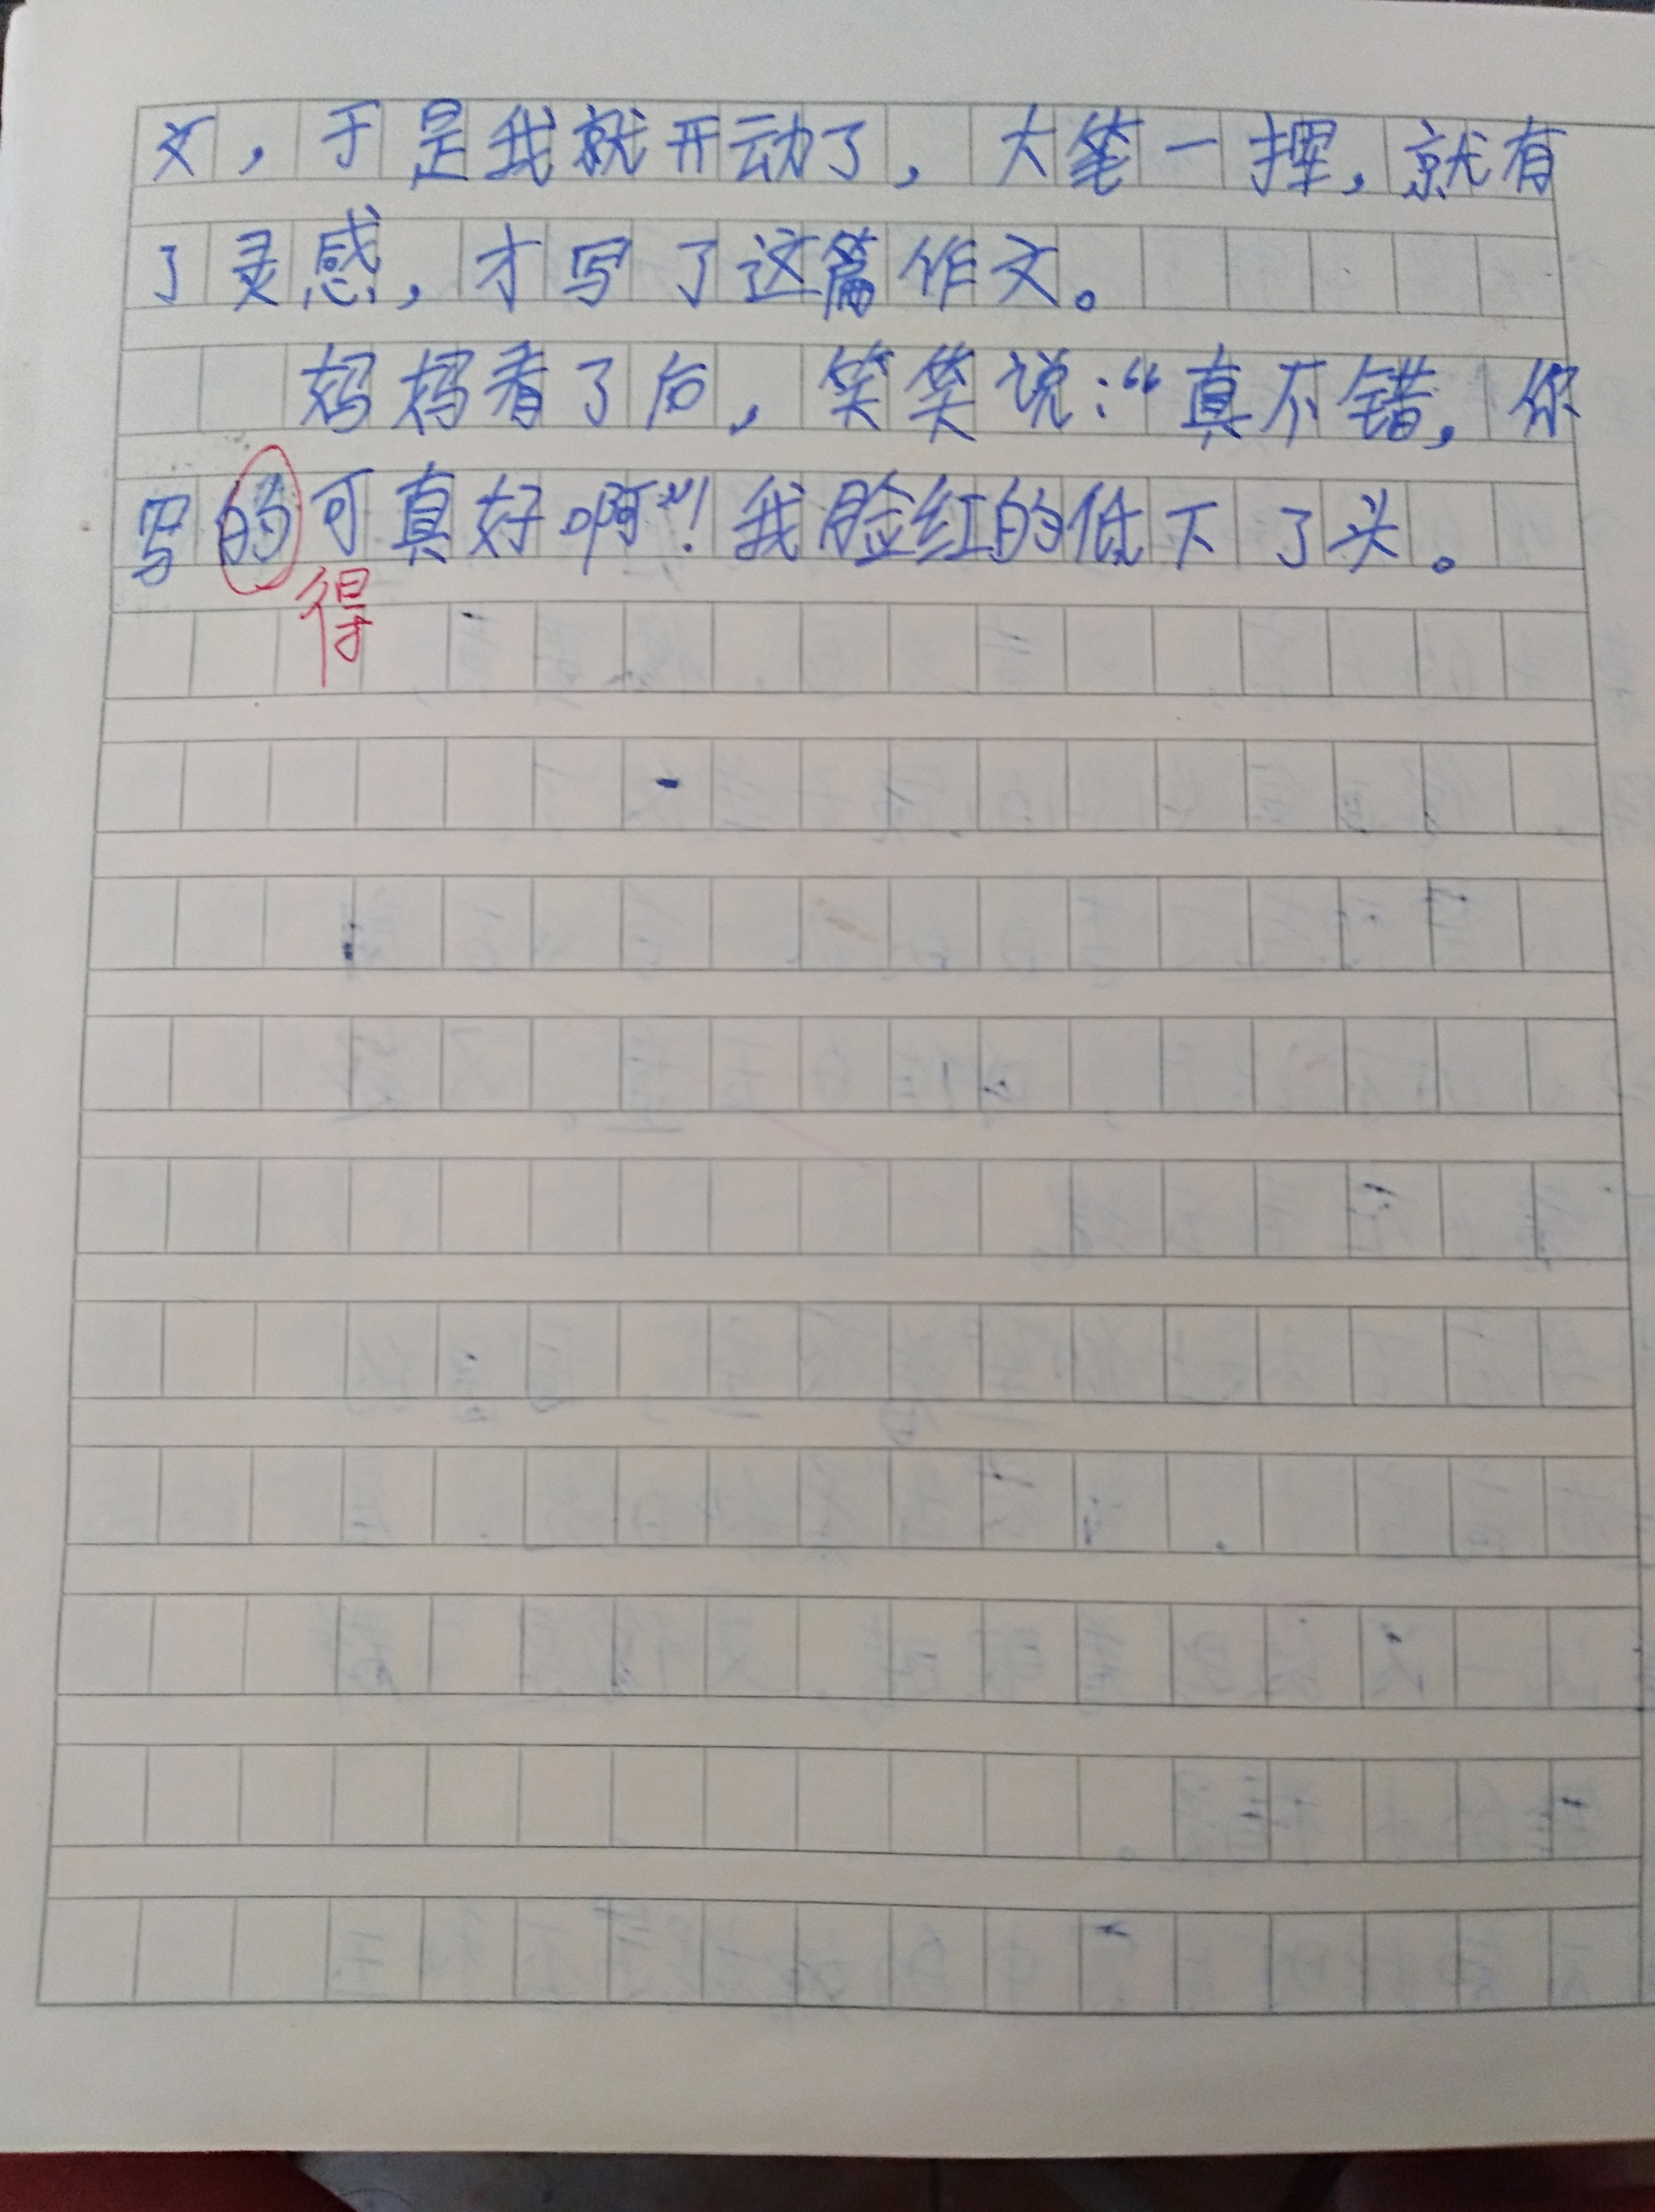 文，于是我就开动了，大笔一挥，就有
了灵感，才写了这篇作文。
妈妈看了后，笑笑说：“真不错，你
写的可真好啊”！我脸红的低下了头。
得